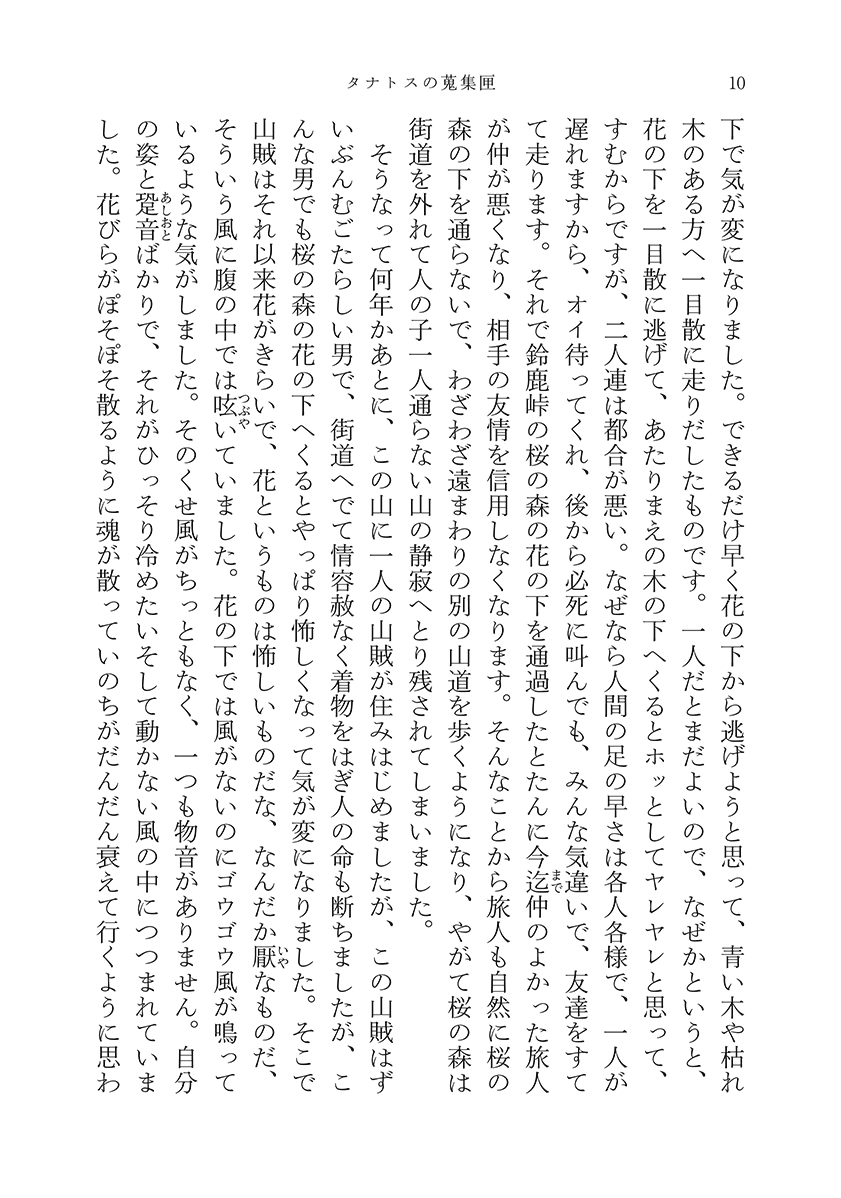 タナトスの蒐集匣
10
下で気が変になりました。できるだけ早く花の下から逃げようと思って、青い木や枯れ
木のある方へ一目散に走りだしたものです。一人だとまだよいので、なぜかというと、
花の下を一目散に逃げて、あたりまえの木の下へくるとホッとしてヤレヤレと思って、
すむからですが、二人連は都合が悪い。なぜなら人間の足の早さは各人各様で、一人が
遅れますから、オイ待ってくれ、後から必死に叫んでも、みんな気違いで、友達をすて
て走ります。それで鈴鹿峠の桜の森の花の下を通過したとたんに今迄まで仲のよかった旅人
が仲が悪くなり、相手の友情を信用しなくなります。そんなことから旅人も自然に桜の
森の下を通らないで、わざわざ遠まわりの別の山道を歩くようになり、やがて桜の森は
街道を外れて人の子一人通らない山の静寂へとり残されてしまいました。
そうなって何年かあとに、この山に一人の山賊が住みはじめましたが、この山賊はず
いぶんむごたらしい男で、街道へでて情容赦なく着物をはぎ人の命も断ちましたが、こ
んな男でも桜の森の花の下へくるとやっぱり怖しくなって気が変になりました。そこで
山賊はそれ以来花がきらいで、花というものは怖しいものだな、なんだか厭いやなものだ、
そういう風に腹の中では呟つぶやいていました。花の下では風がないのにゴウゴウ風が鳴って
いるような気がしました。そのくせ風がちっともなく、一つも物音がありません。自分
の姿と跫音あしおとばかりで、それがひっそり冷めたいそして動かない風の中につつまれていま
した。花びらがぽそぽそ散るように魂が散っていのちがだんだん衰えて行くように思わ